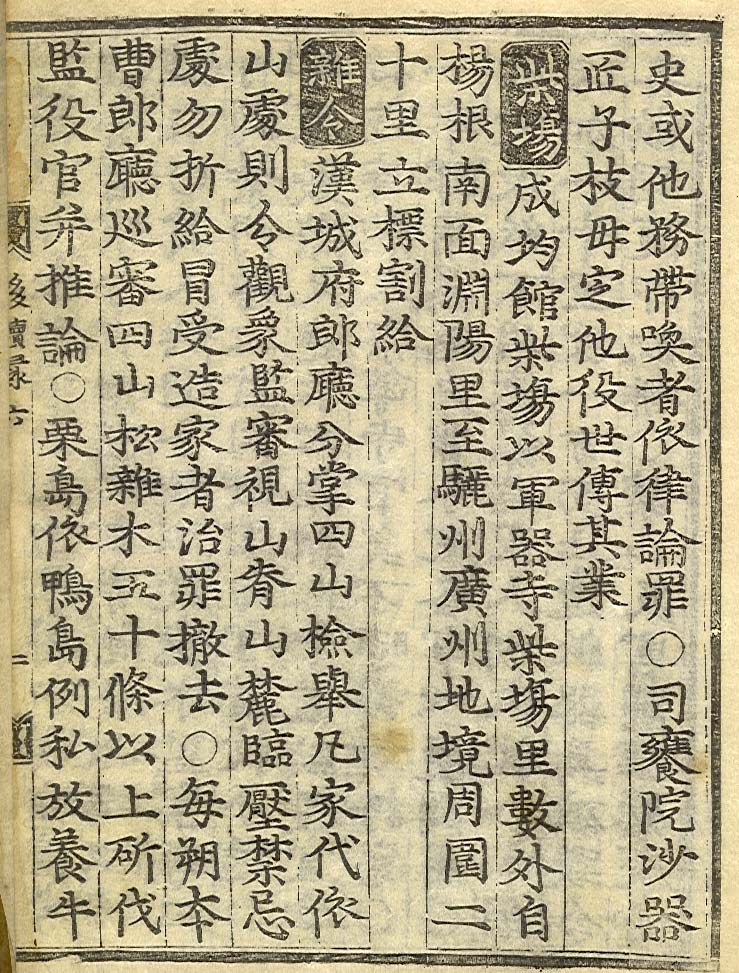 史或他務帶喚者依律論罪○司饔院沙器
匠子枝毋定他役世傳其業
柴場 成均館柴場以軍器寺柴場里數外自
楊根南面淵陽里至驪州廣州地境周圍二
十里立標割給
雜令 漢城府郎廳分掌四山檢舉凡家代依
山處則令觀象監審視山脊山麓臨壓禁忌
處勿折給冒受造家者治罪撤去○每朔本
曹郎廳巡審四山松雜木五十條以上斫伐
監役官并推論○栗島依鴨島例私放養牛
後續录六
二